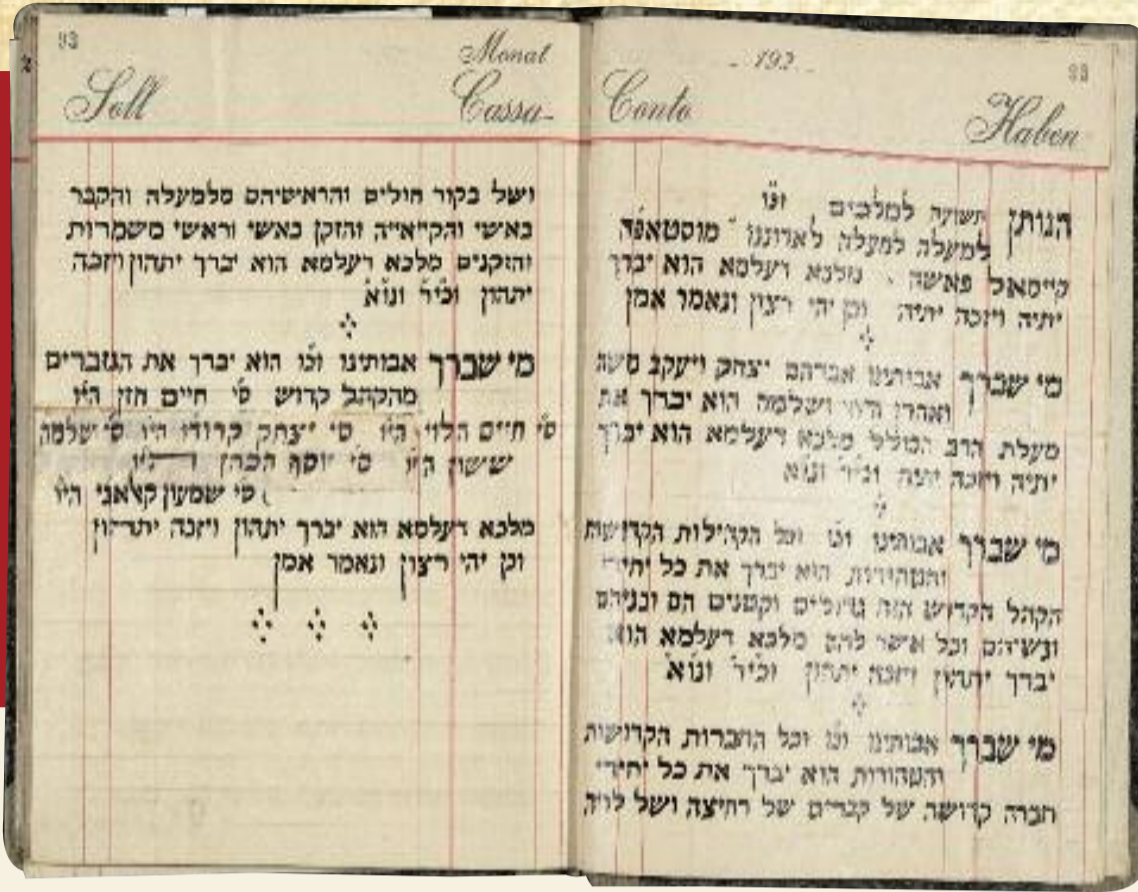 93
Monat
- 192 -
93
Soll
Cassa-
Conto
Haben
הנותן תשועה למלכים וכו
למעלה למעלה לאדוננו מוסטאפה
קיימאל פאשה . מלכא דעלמא הוא יברך
יתיה ויזכה יתיה וכן יהי רצון ונאמר אמן
מי שברך אבותינו אברהם יצחק ויעקב משה
ואהרן ודוד ושלמה הוא יברך את
מעלת הרב הכולל מלכא דעלמא הוא יברך
יתיה ויזכה יתיה וכיר ונוא
מי שברך אבותינו וכו וכל הקהילות הקדושות
והטהורות הוא יברך את כל יחידי
הקהל הקדוש הזה גדולים וקטנים הם ובניהם
ונשיהם וכל אשר להם מלכא דעלמא הוא
יברך יתהון ויזכה יתהון וכיר ונוא
מי שברך אבותינו וכו וכל החברות הקדושות
והטהורות הוא יברך את כל יחידי
חברה קדושה של קברים של רחיצה ושל לויה
ושל בקור חולים והראשיהם מלמעלה והקבר
באשי והקייאייה והזקן באשי וראשי משמרות
והזקנים מלכא דעלמא הוא יברך יתהון ויזכה
יתהון וכיר ונוא
מי שברך אבותינו וכו הוא יברך את הגזברים
מהקהל קדוש סי חיים חזן היו
סי חיים הלוי היו סי יצחק קרודו היו סי שלמה
ששון היו סי יוסף הכהן היו
סי שמעון קלאני היו
מלכא דעלמא הוא יברך יתהון ויזכה יתהון
וכן יהי רצון ונאמר אמן